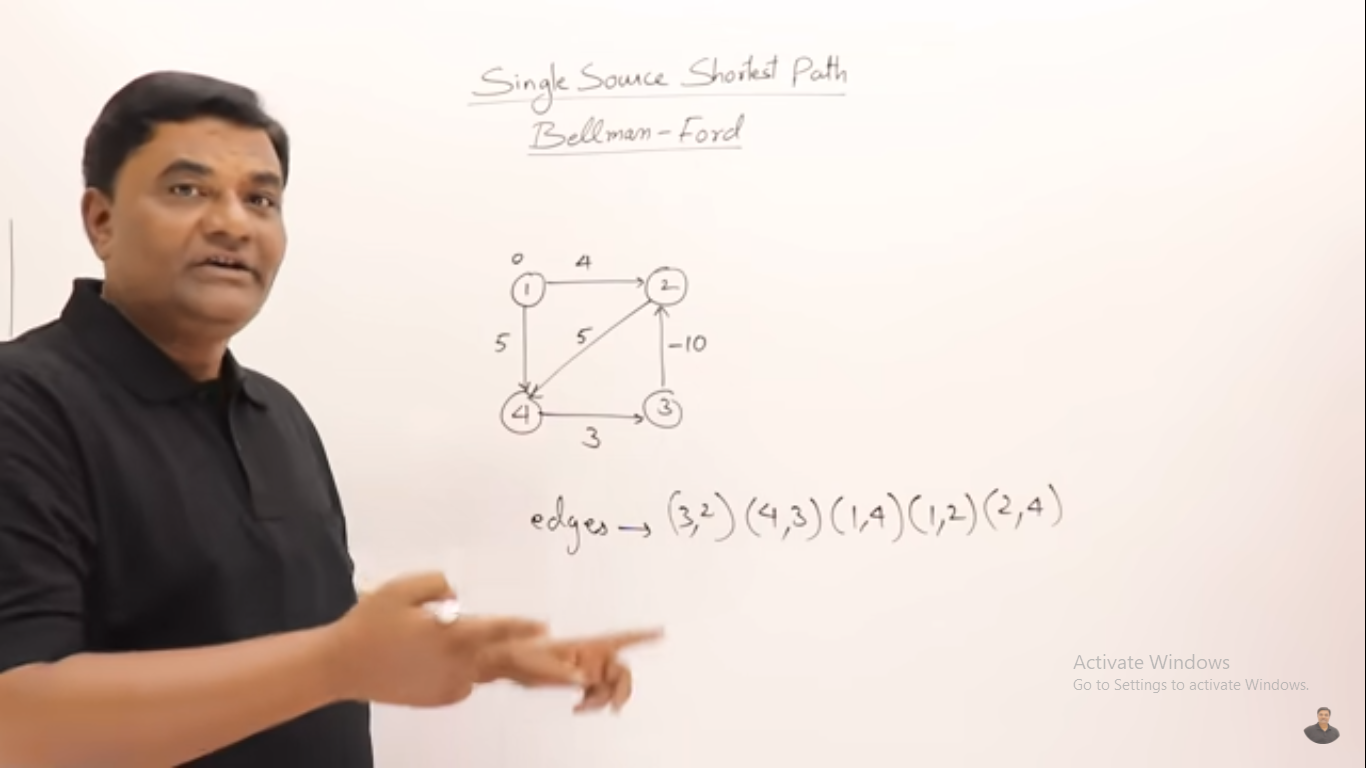 Single Source Shortest Path
Bellman-Ford
0
4
1
2
5
5
-10
4
3
3
edges → (3,2) (4,3) (1,4) (1,2) (2,4)
Activate Windows
Go to Settings to activate Windows.